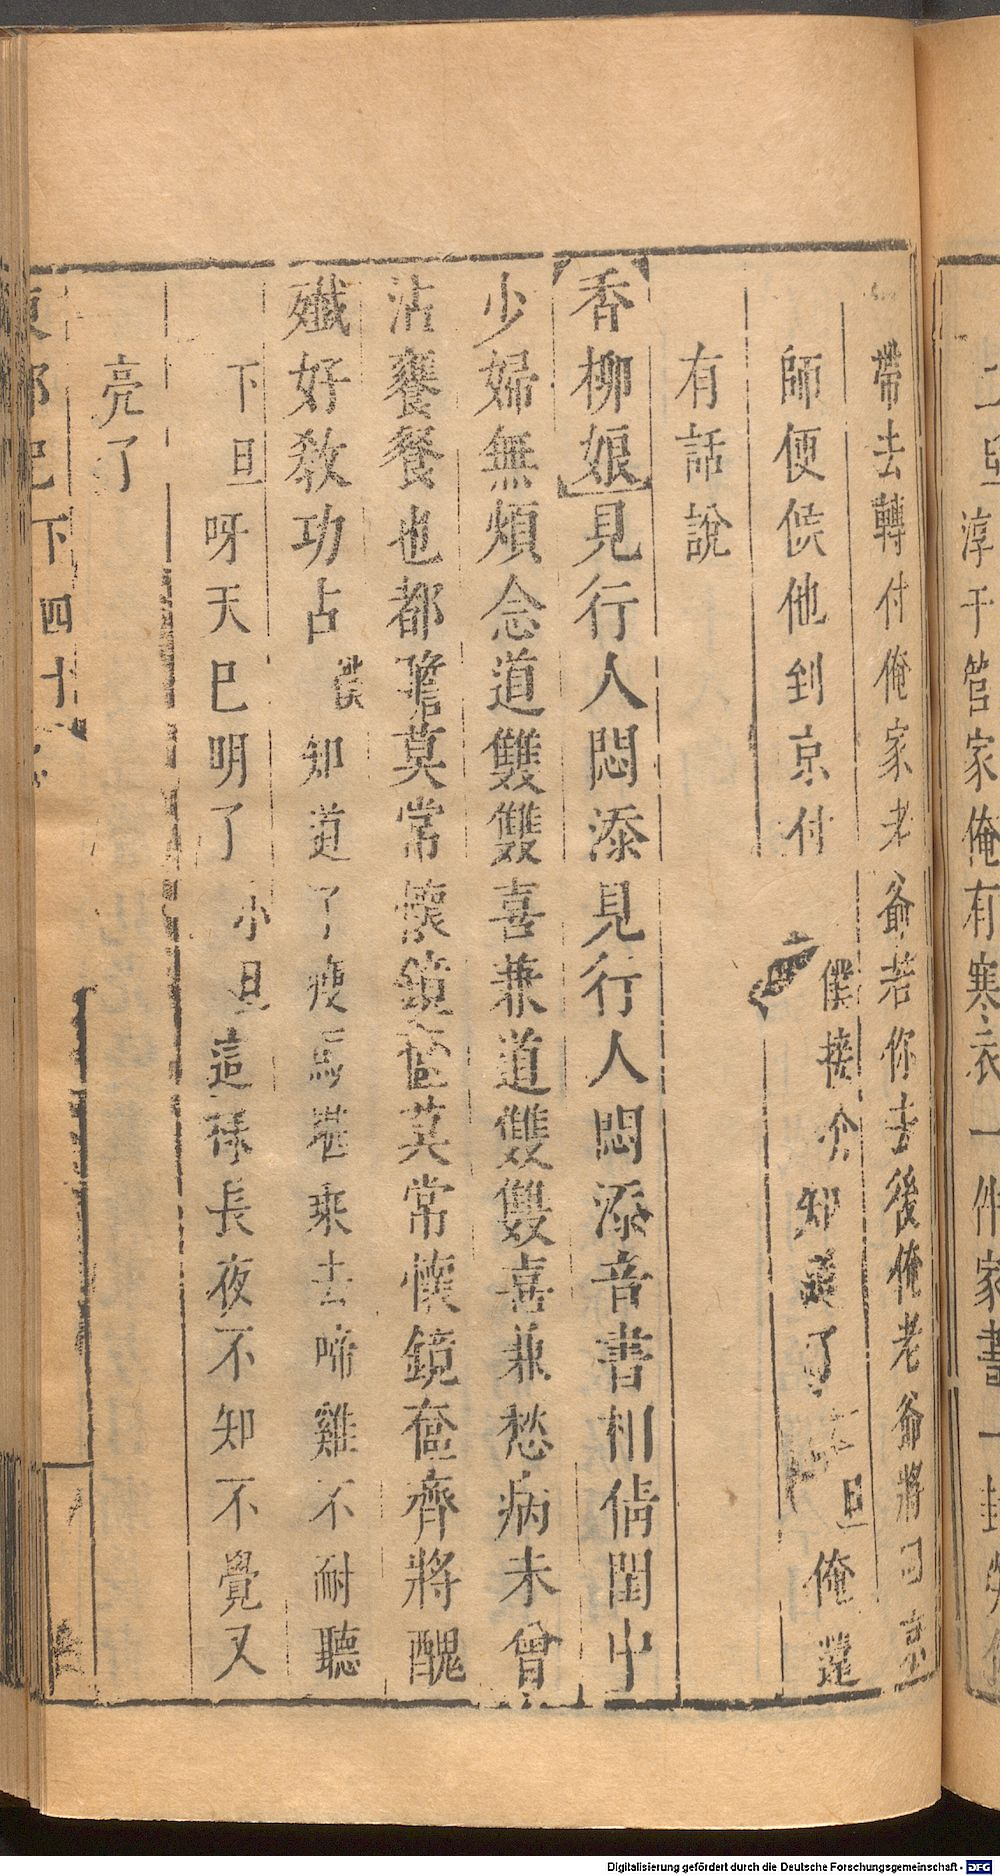 二里淳于管家俺有寒衣一件家書一封
帶去轉付俺家老爺若你去後俺老爺將回京
師便候他到京付 僕接介 知道了 旦 俺還
有話說
香柳娘 見行人悶添見行人悶添音書相倩閨中
少婦無煩念道雙雙喜兼道雙雙喜兼愁病未曾
沾饔餐也都擔莫常懷鏡奩莫常懷鏡奩齊將醜
孅好教功占 僕 知道了瘦馬來去啼雞不耐聽
下 旦 呀天已明了 小旦 這樣長夜不知不覺又
亮了
東郭記下 四十
Digitalisierung gefördert durch die Deutsche Forschungsgemeinschaft - DFG